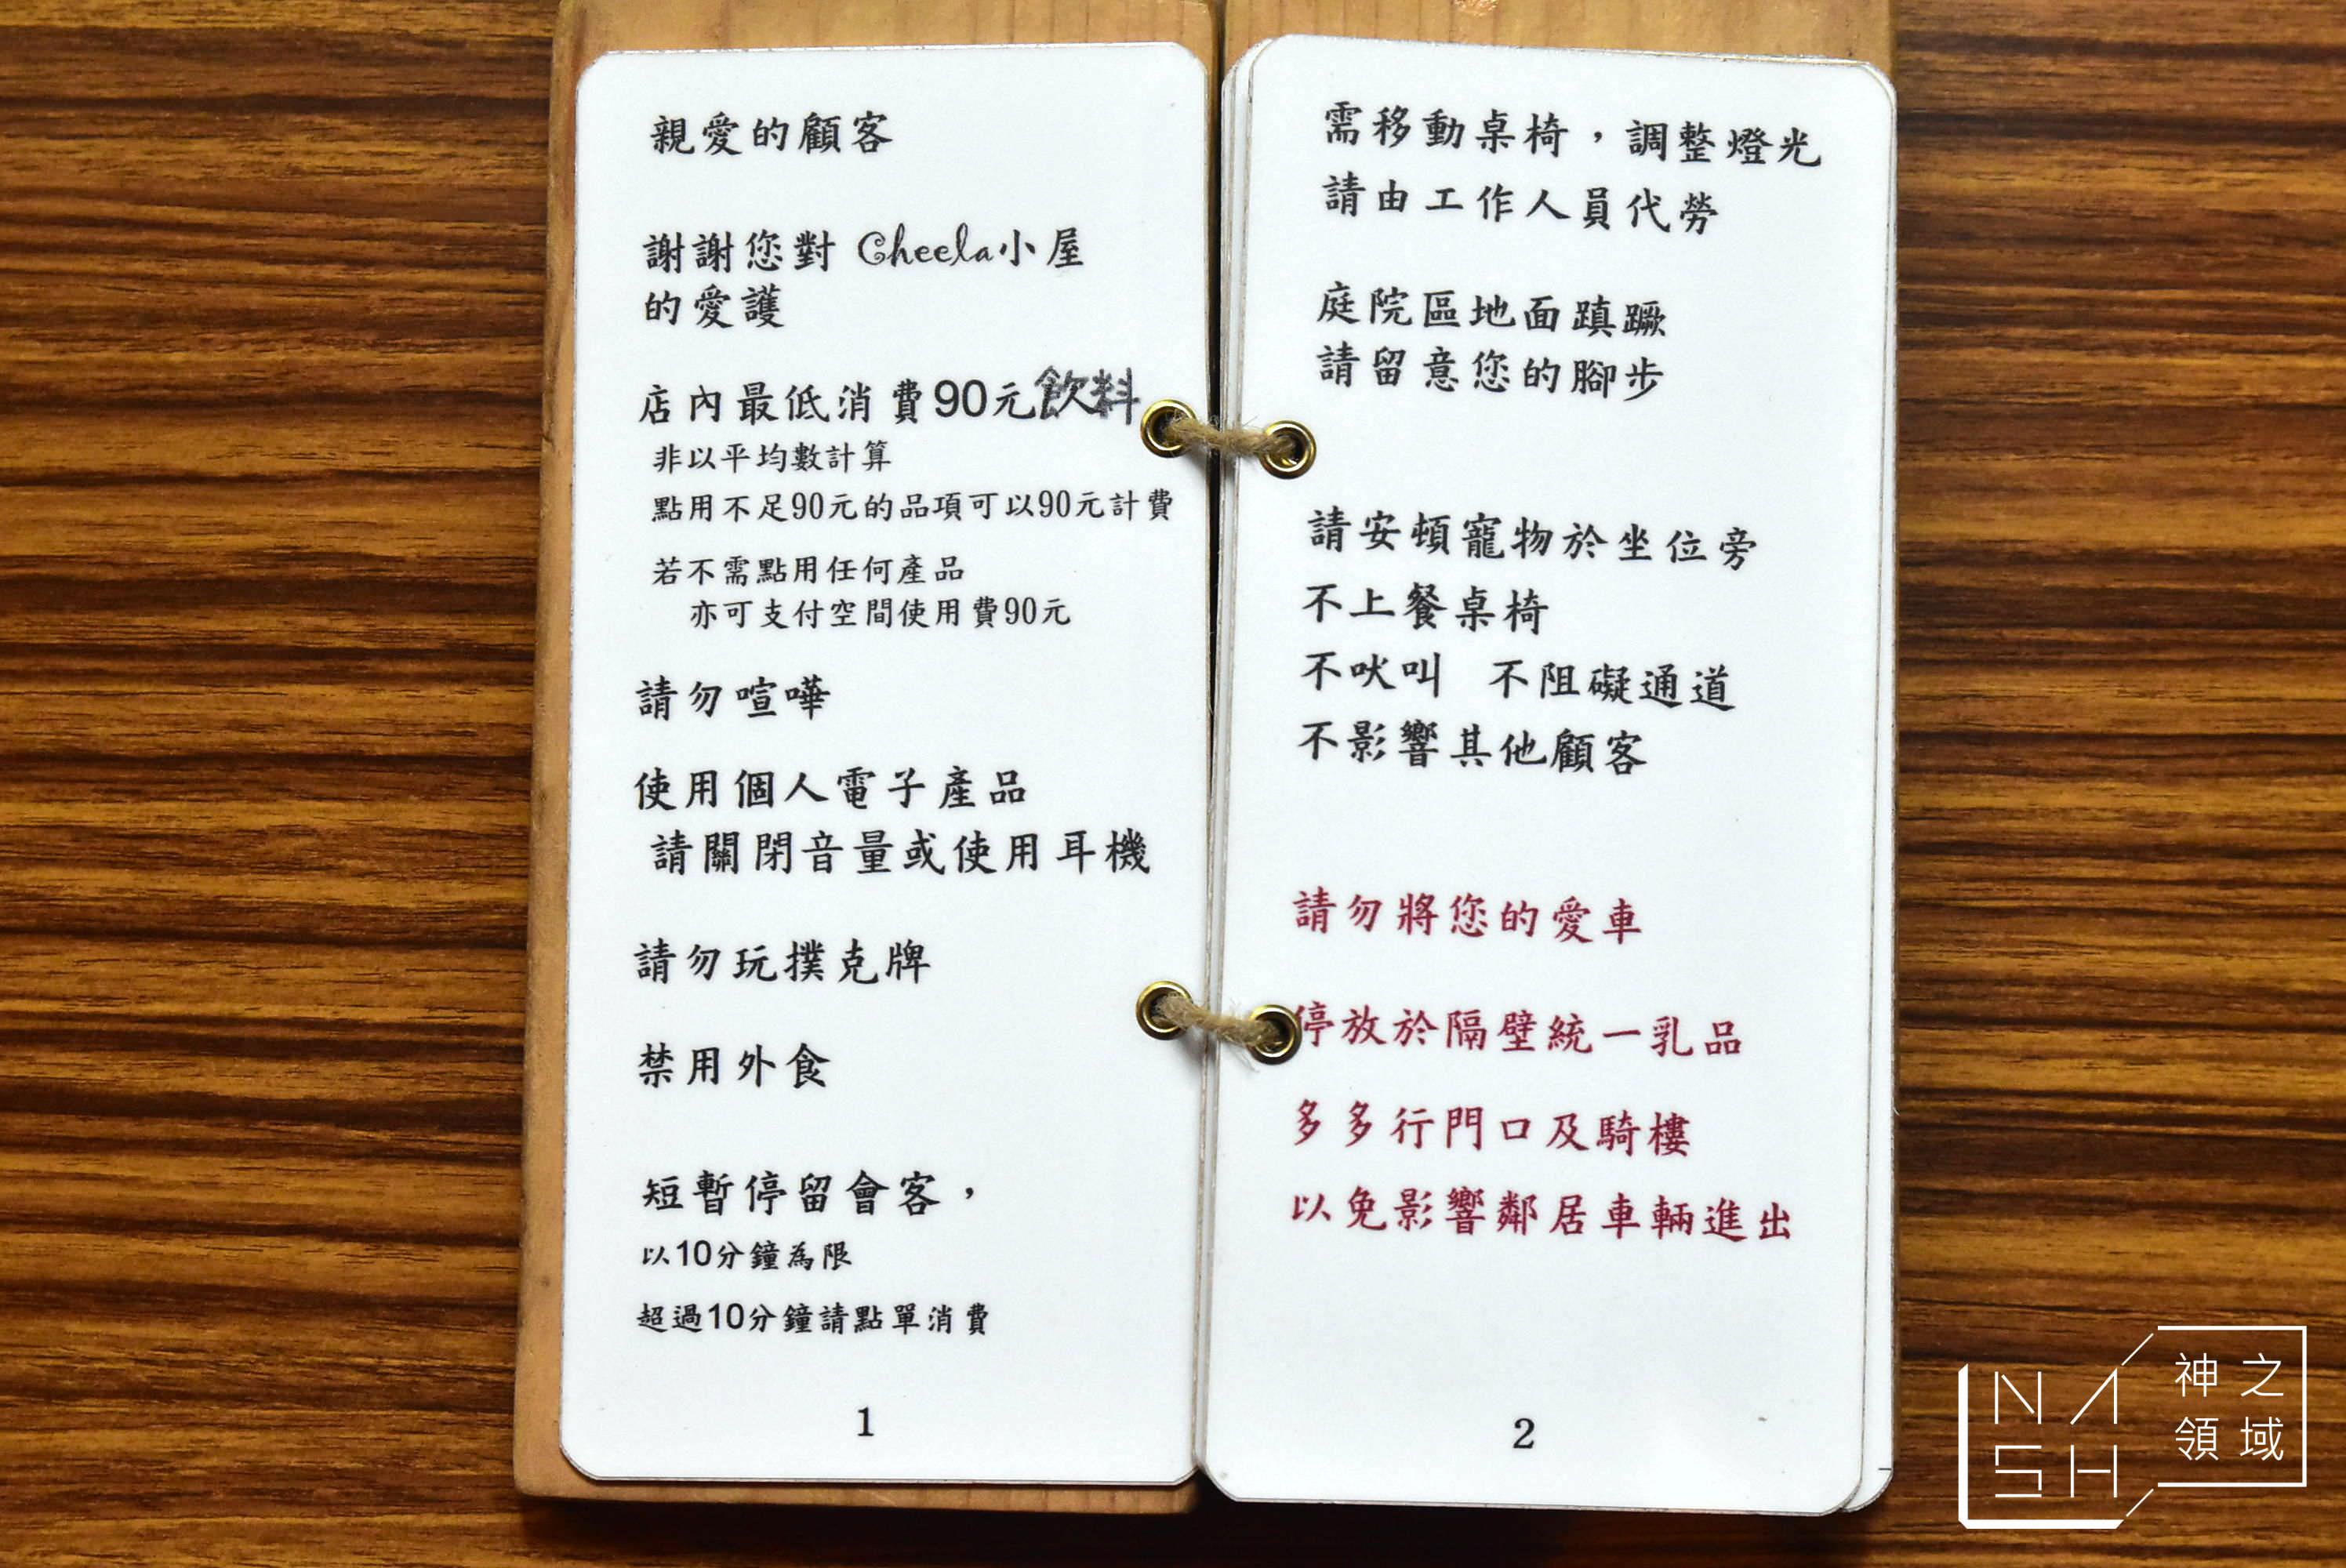 親愛的顧客
謝謝您對 Cheela小屋
的愛護
店內最低消費90元飲料
非以平均數計算
點用不足90元的品項可以90元計費
若不需點用任何產品
亦可支付空間使用費90元
請勿喧嘩
使用個人電子產品
請關閉音量或使用耳機
請勿玩撲克牌
禁用外食
短暫停留會客，
以10分鐘為限
超過10分鐘請點單消費
1
需移動桌椅，調整燈光
請由工作人員代勞
庭院區地面蹎蹶
請留意您的腳步
請安頓寵物於坐位旁
不上餐桌椅
不吠叫 不阻礙通道
不影響其他顧客
請勿將您的愛車
停放於隔壁統一乳品
多多行門口及騎樓
以免影響鄰居車輛進出
2
NASH
神之
領域